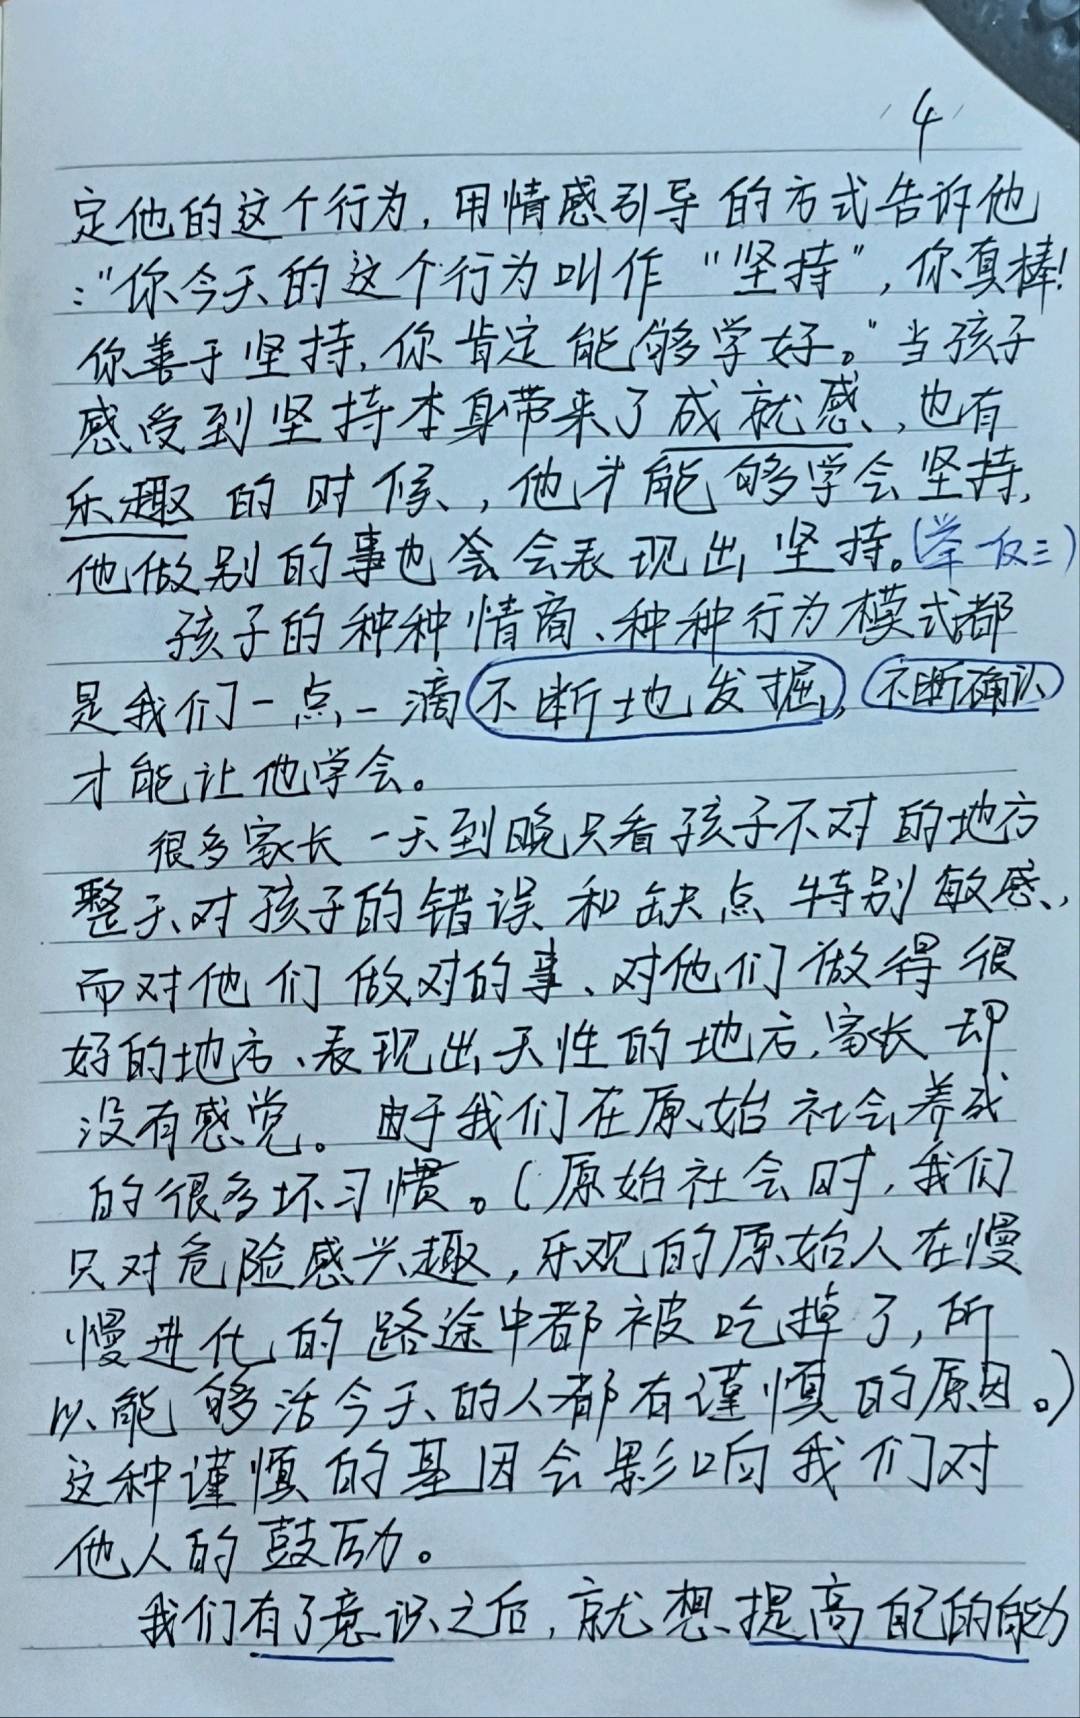 4
定他的这个行为，用情感引导的方式告诉他
：“你今天的这个行为叫作“坚持”，你真棒！
你善于坚持，你肯定能够学好。”当孩子
感受到坚持本身带来了成就感，也有
乐趣的时候，他才能够学会坚持，
他做别的事也会会表现出坚持。（举一反三）
孩子的种种情商、种种行为模式都
是我们一点一滴不断地发掘，不断确认
才能让他学会。
很多家长一天到晚只看孩子不对的地方
整天对孩子的错误和缺点特别敏感，
而对他们做对的事、对他们做得很
好的地方、表现出天性的地方，家长却
没有感觉。由于我们在原始社会养成
的很多坏习惯。（原始社会时，我们
只对危险感兴趣，乐观的原始人在慢
慢进化的路途中都被吃掉了，所
以能够活今天的人都有谨慎的原因。）
这种谨慎的基因会影响我们对
他人的鼓励。
我们有了意识之后，就想提高自己的能力